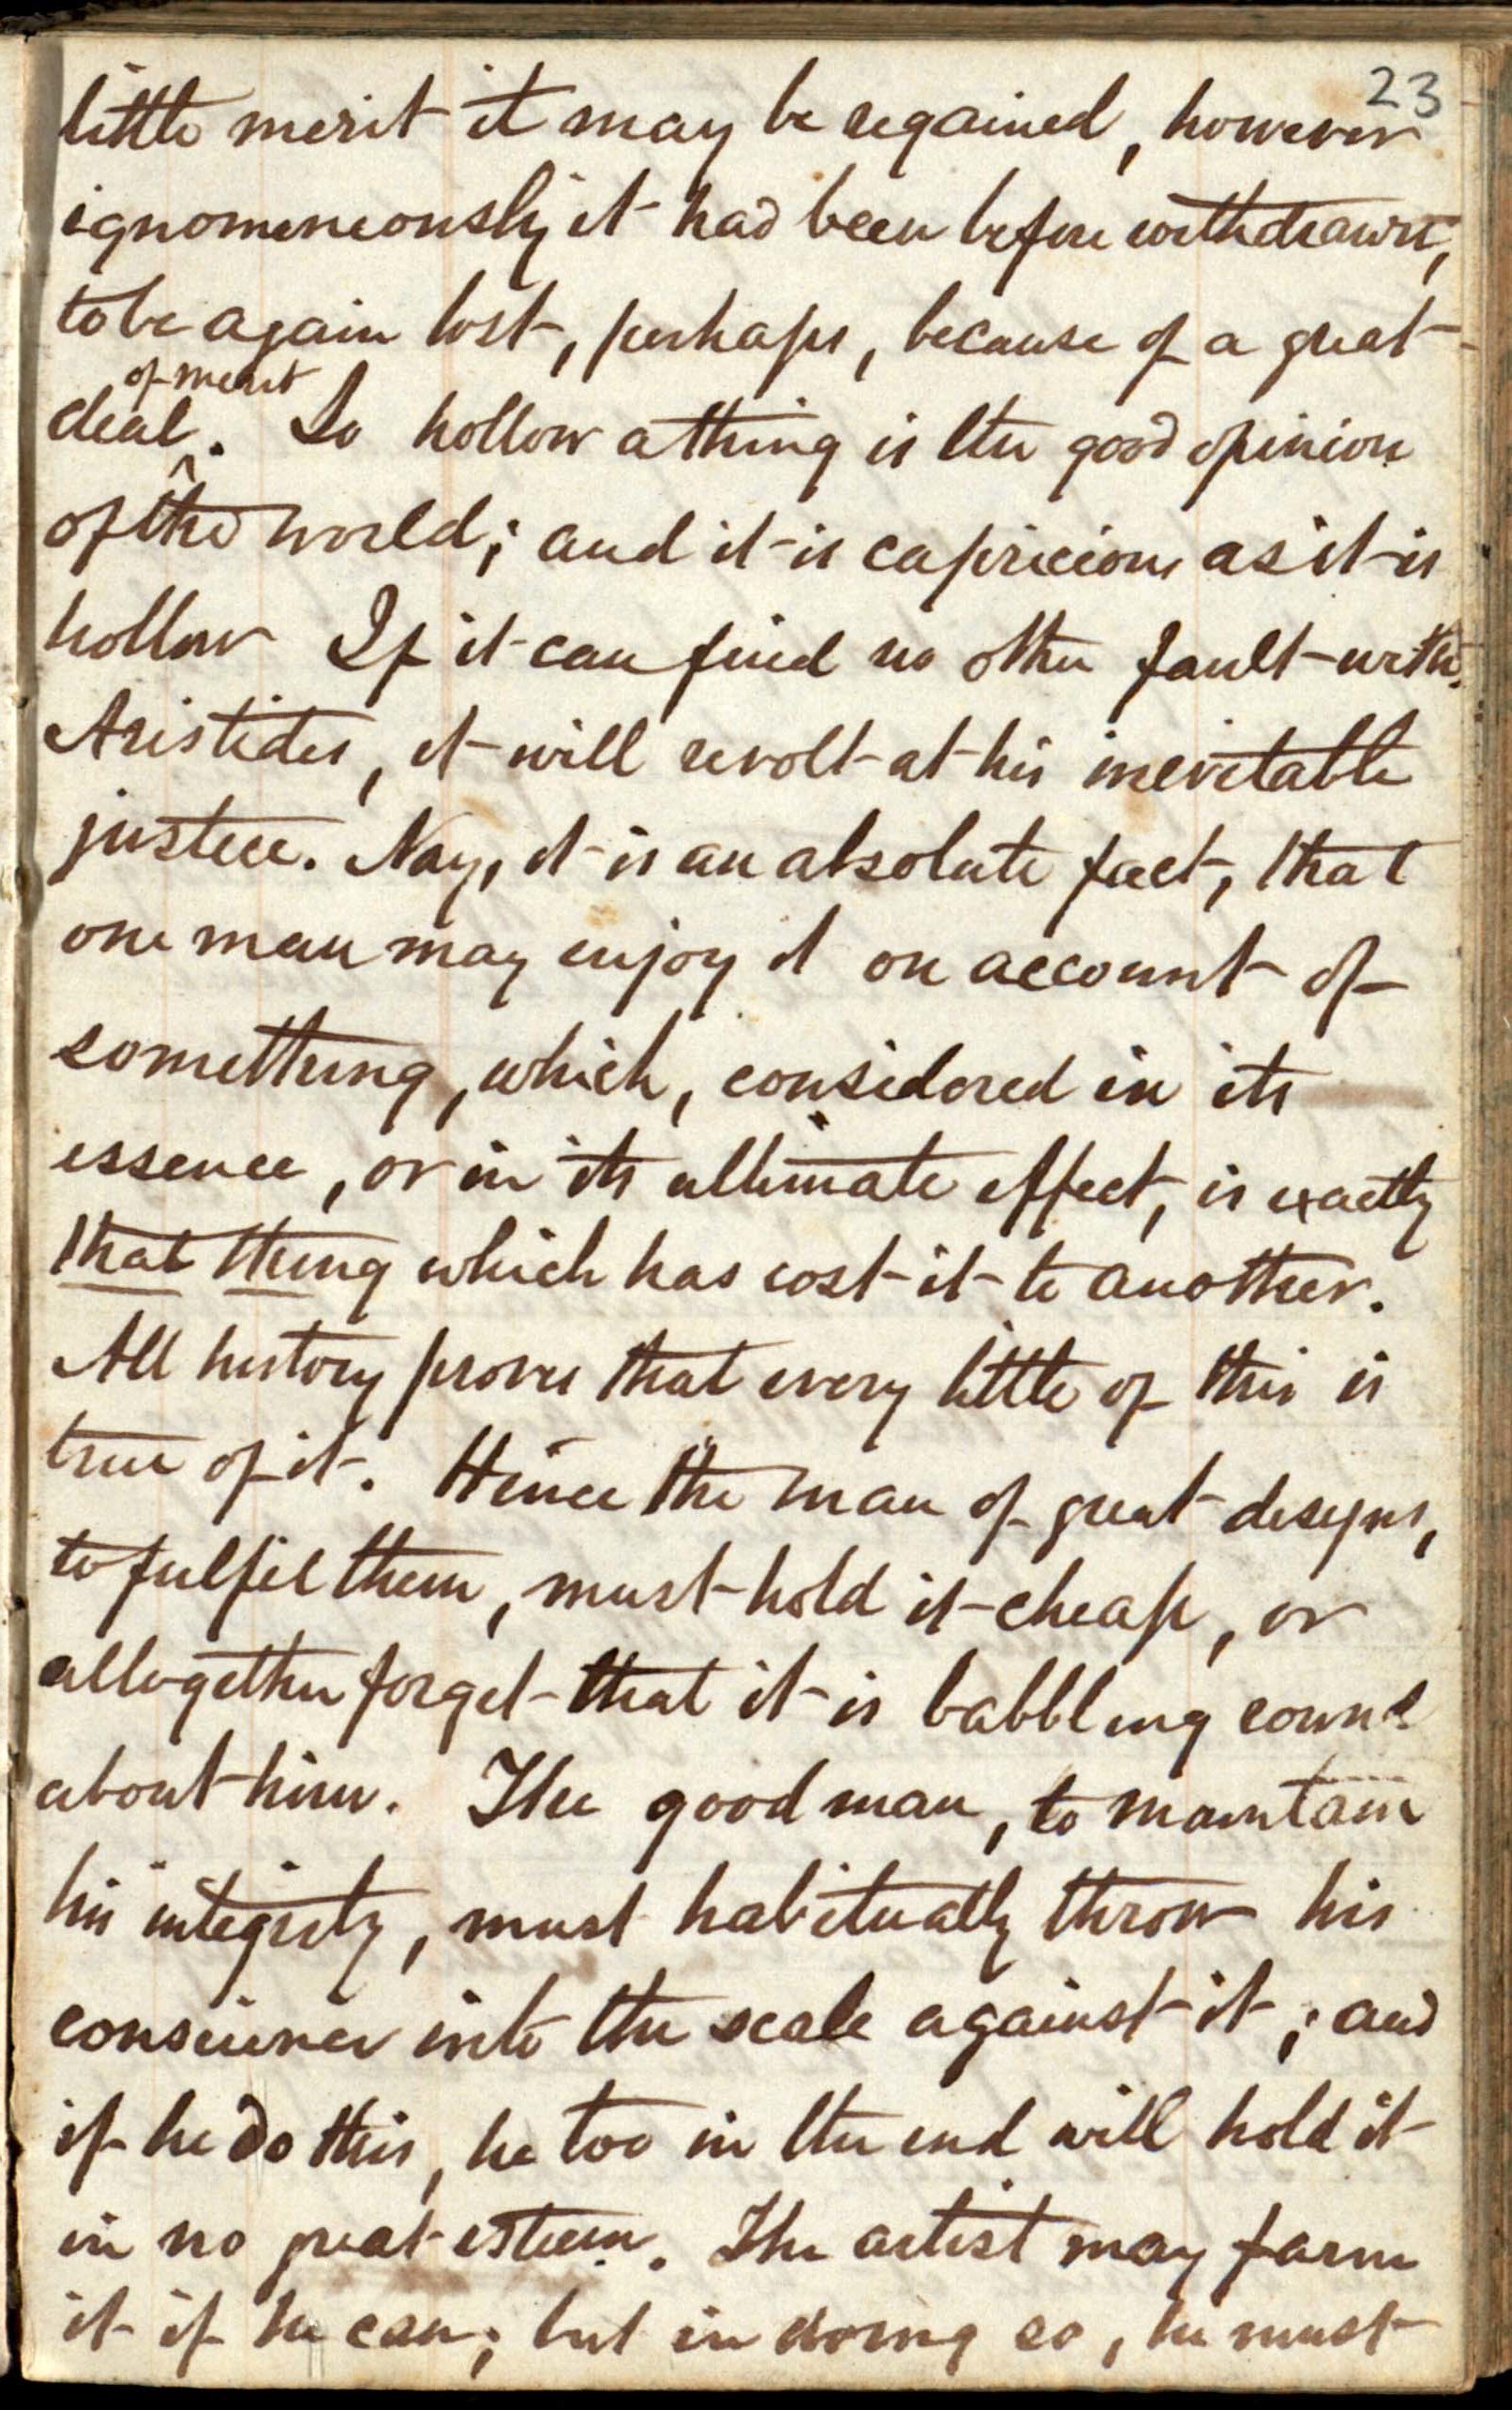 23
little merit it may be regained, however
ignomeneously it had been before withdrawn,
to be again lost, perhaps, because of a great
of merit
deal. So hollow a thing is the good opinion
of the world; and it is capricious as it is
hollow If it can find no other fault with
Aristides, it will revolt at his inevitable
justice. Nay, it is an absolute fact, that
one man may enjoy it on account of
something, which, considered in its
essence, or in its ultimate effect, is exactly
that thing which has cost it to another.
All history proves that every tittle of this is
true of it. Hence the man of great designs,
to fulfil them, must hold it cheap, or
altogether forget that it is babbling round
about him. The good man, to maintain
his integrity, must habitually throw his
conscience into the scale against it; and
if he do this, he too in the end will hold it
in no great esteem. The artist may farm
it if he can; but in doing so, he must